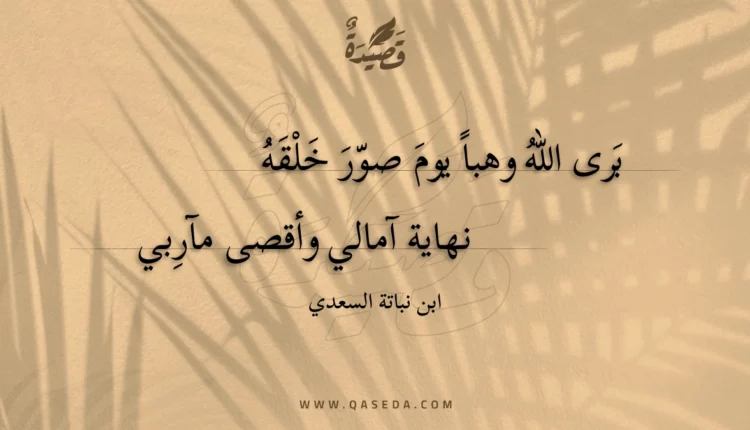 قَصِيدَةٌ
بَرى اللّهُ وهباً يومَ صوّرَ خَلْقَهُ
نهاية آمالي وأقصى مآرِبي
ابن نباتة السعدي
WWW.QASEDA.COM